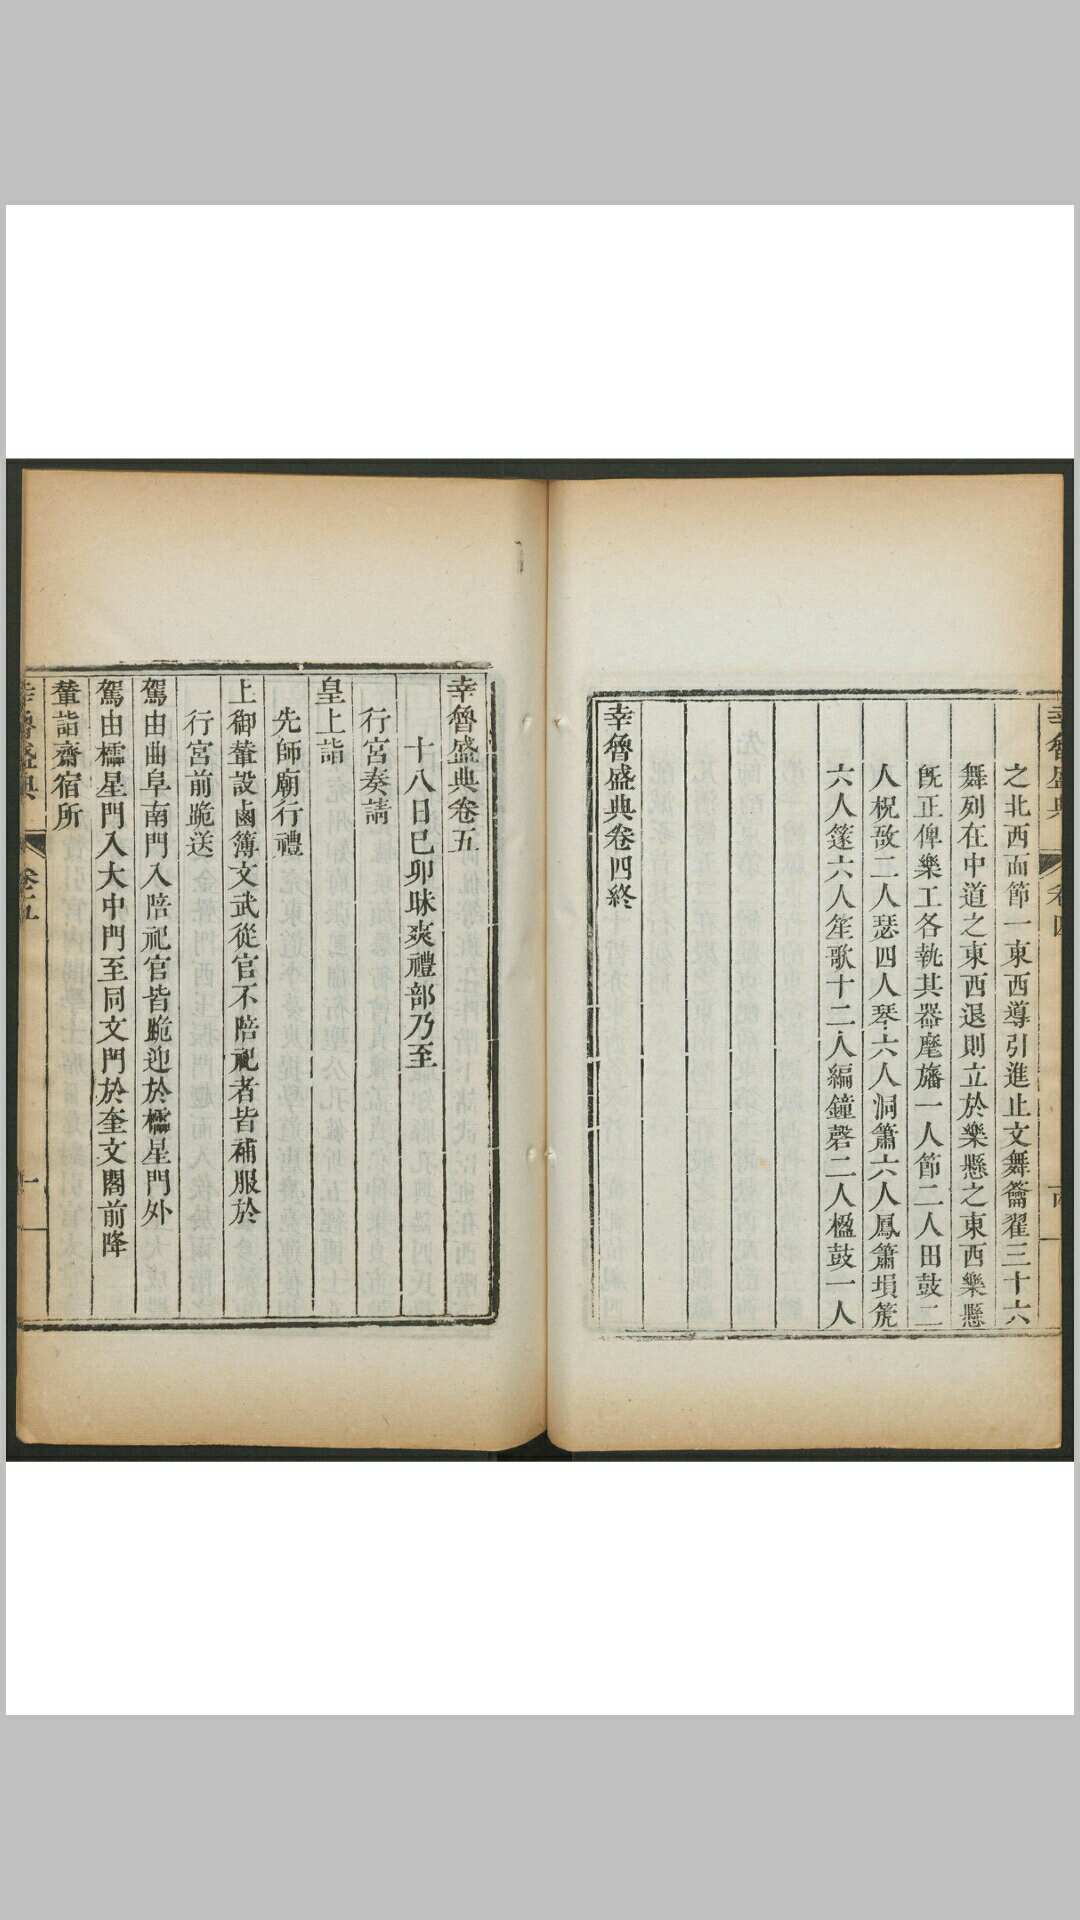 幸魯盛典 卷四
之北西面節一東西導引進止文舞籥翟三十六
舞列在中道之東西退則立於樂懸之東西樂懸
旣正俾樂工各執其器麾旛一人節二人田鼓二
人柷敔二人瑟四人琴六人洞簫六人鳳簫塤箎
六人篴六人笙歌十二人編鐘磬二人楹鼓一人
幸魯盛典卷四終
幸魯盛典卷五
十八日巳卯昧爽禮部乃至
行宮奏請
皇上詣
先師廟行禮
上御輦設鹵簿文武從官不陪祀者皆補服於
行宮前跪送
駕由曲阜南門入陪祀官皆跪迎於櫺星門外
駕由櫺星門入大中門至同文門於奎文閣前降
輦詣齋宿所
幸魯盛典 卷五 一